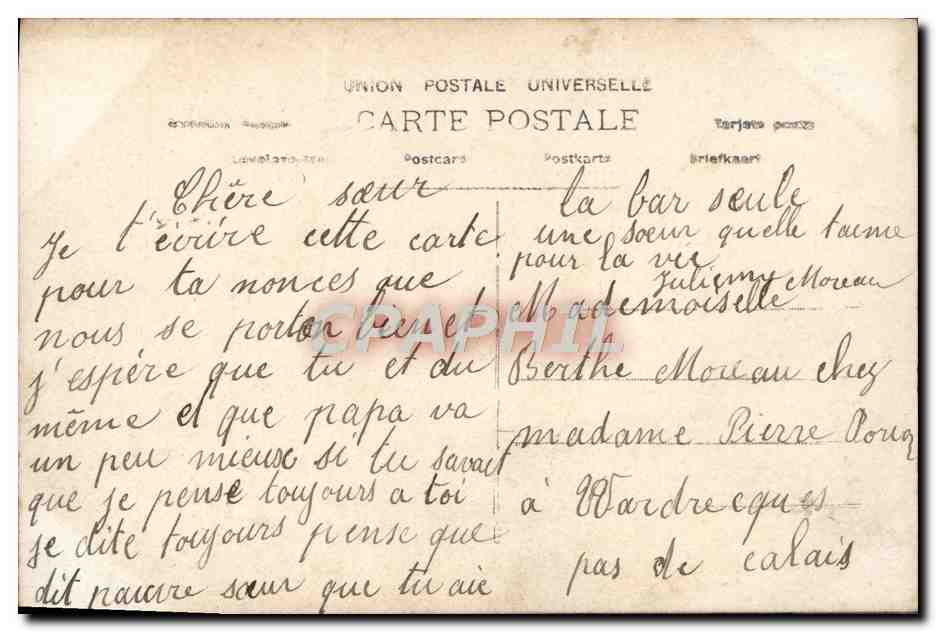 UNION POSTALE UNIVERSELLE
CARTE POSTALE
Postcard Postkarte Briefkaart
Chère sœur
Je t'écrire cette carte
pour ta nonces que
nous se porton bien et
j'espére que tu et du
même et que papa va
un peu mieux si tu savait
que je pense toujours a toi
je dite toujours pense que
dit pauvre sœur que tu aie
la bar seule
une soeur quelle taime
pour la vie
Julienny Moreau
Mademoiselle
Berthe Moreau chez
madame Pierre
à Wardrecques
pas de calais
CPAPHIL